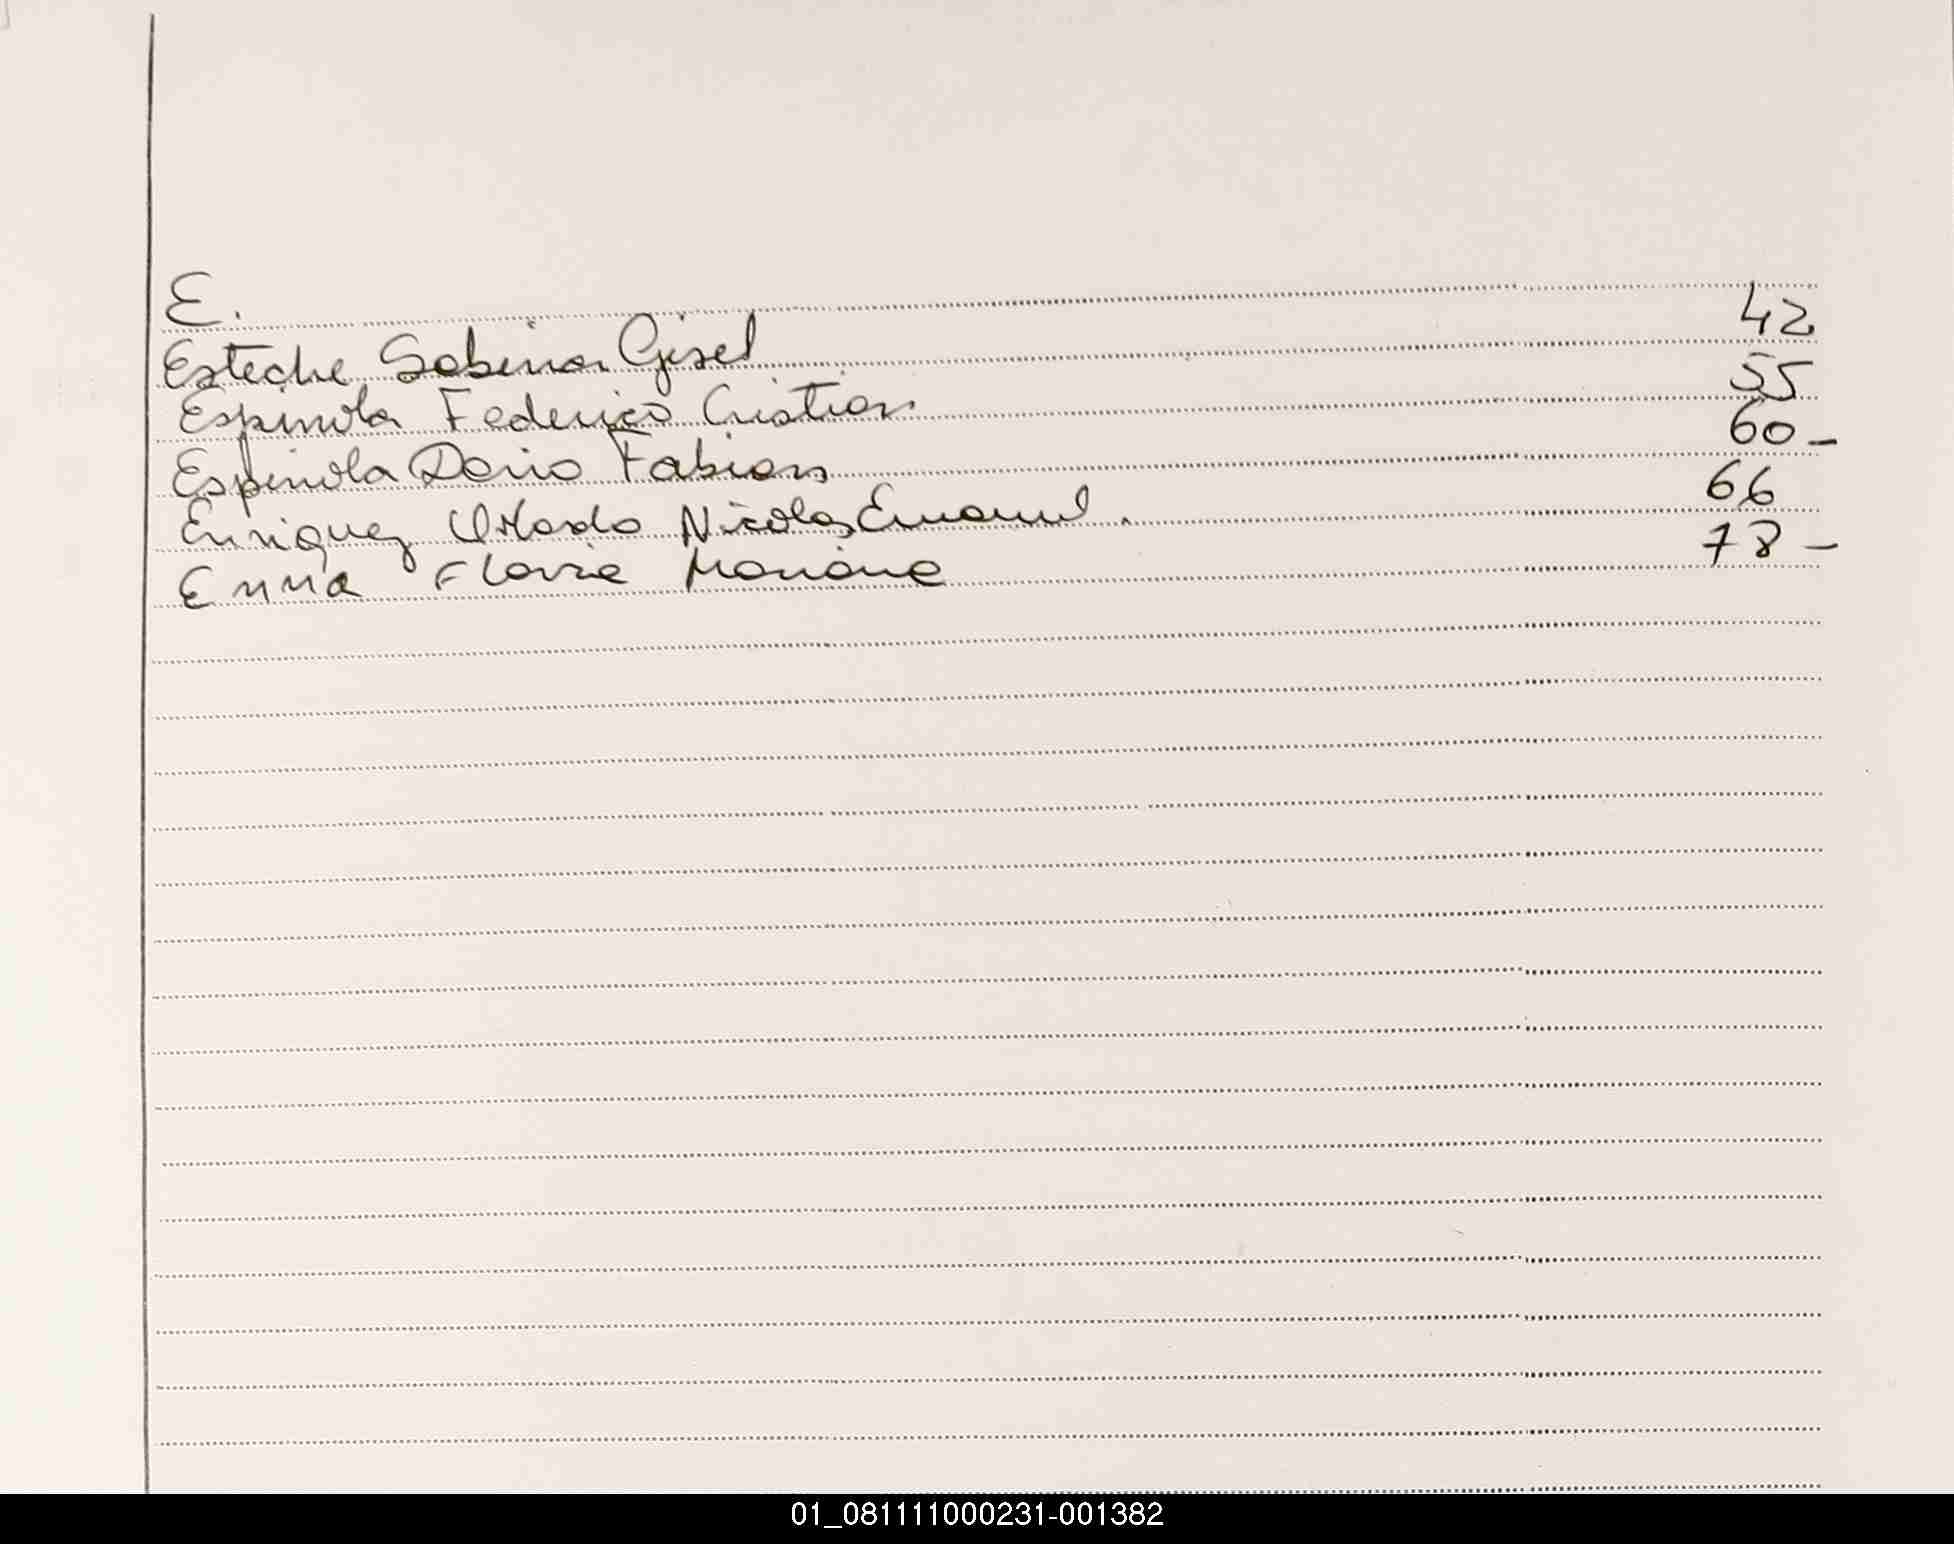 E.
Esteche Sabina Gisel 42
Espinola Federico Cristian 55
Espinola Dario Fabian 60-
Enriquez Nicolas Emanuel. 66
Enna Flavia Mariana 78-
01_081111000231-001382